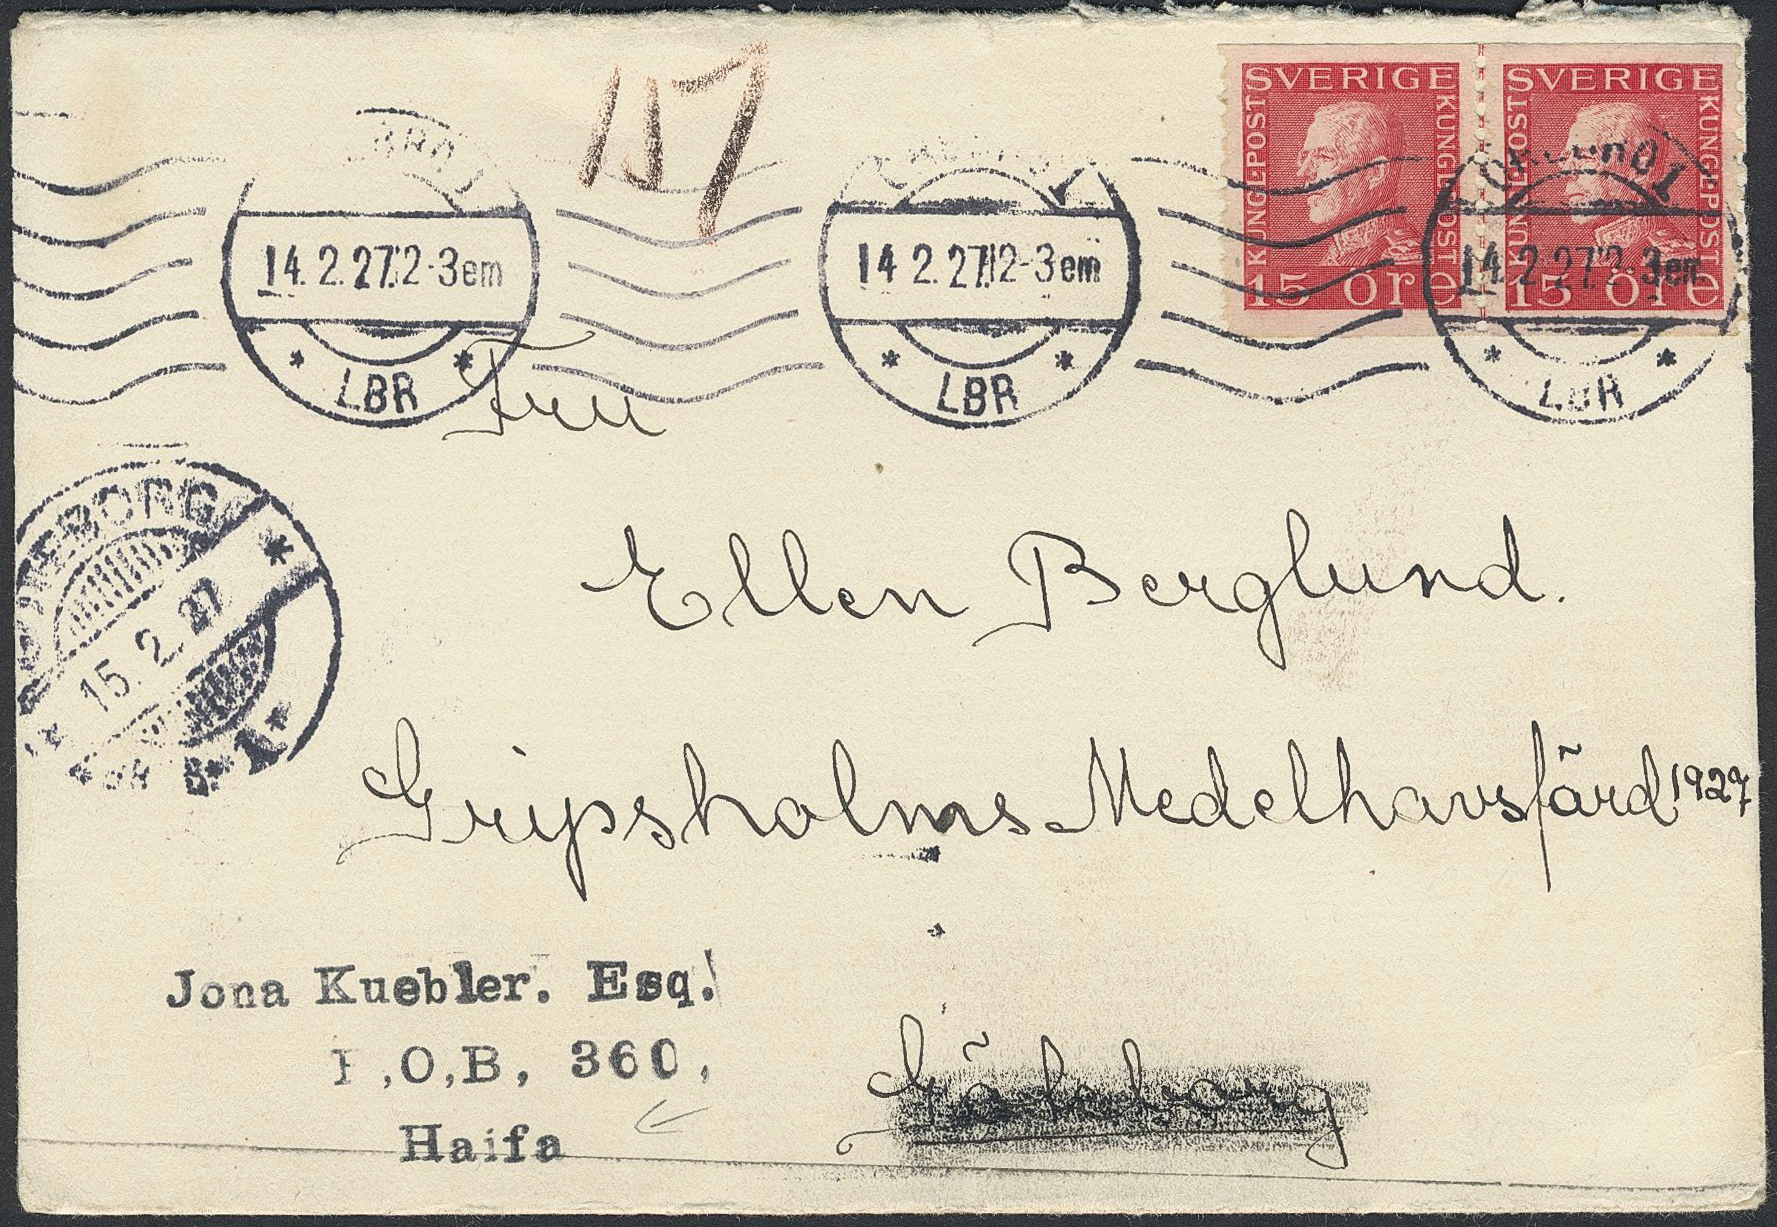 SVERIGE SVERIGE
KUNGL.POST KUNGL.POST KUNGL.POST KUNGL.POST
15 öre 15 öre
14.2.27.12-3em 14.2.27.12-3em 14.2.27.12-3em
LBR LBR LBR
Fru
GÖTEBORG
15.2.27
*1*
Ellen Berglund.
Gripsholms Medelhavsfärd 1927
Jona Kuebler. Esq.
P,O,B, 360,
Haifa
Göteborg